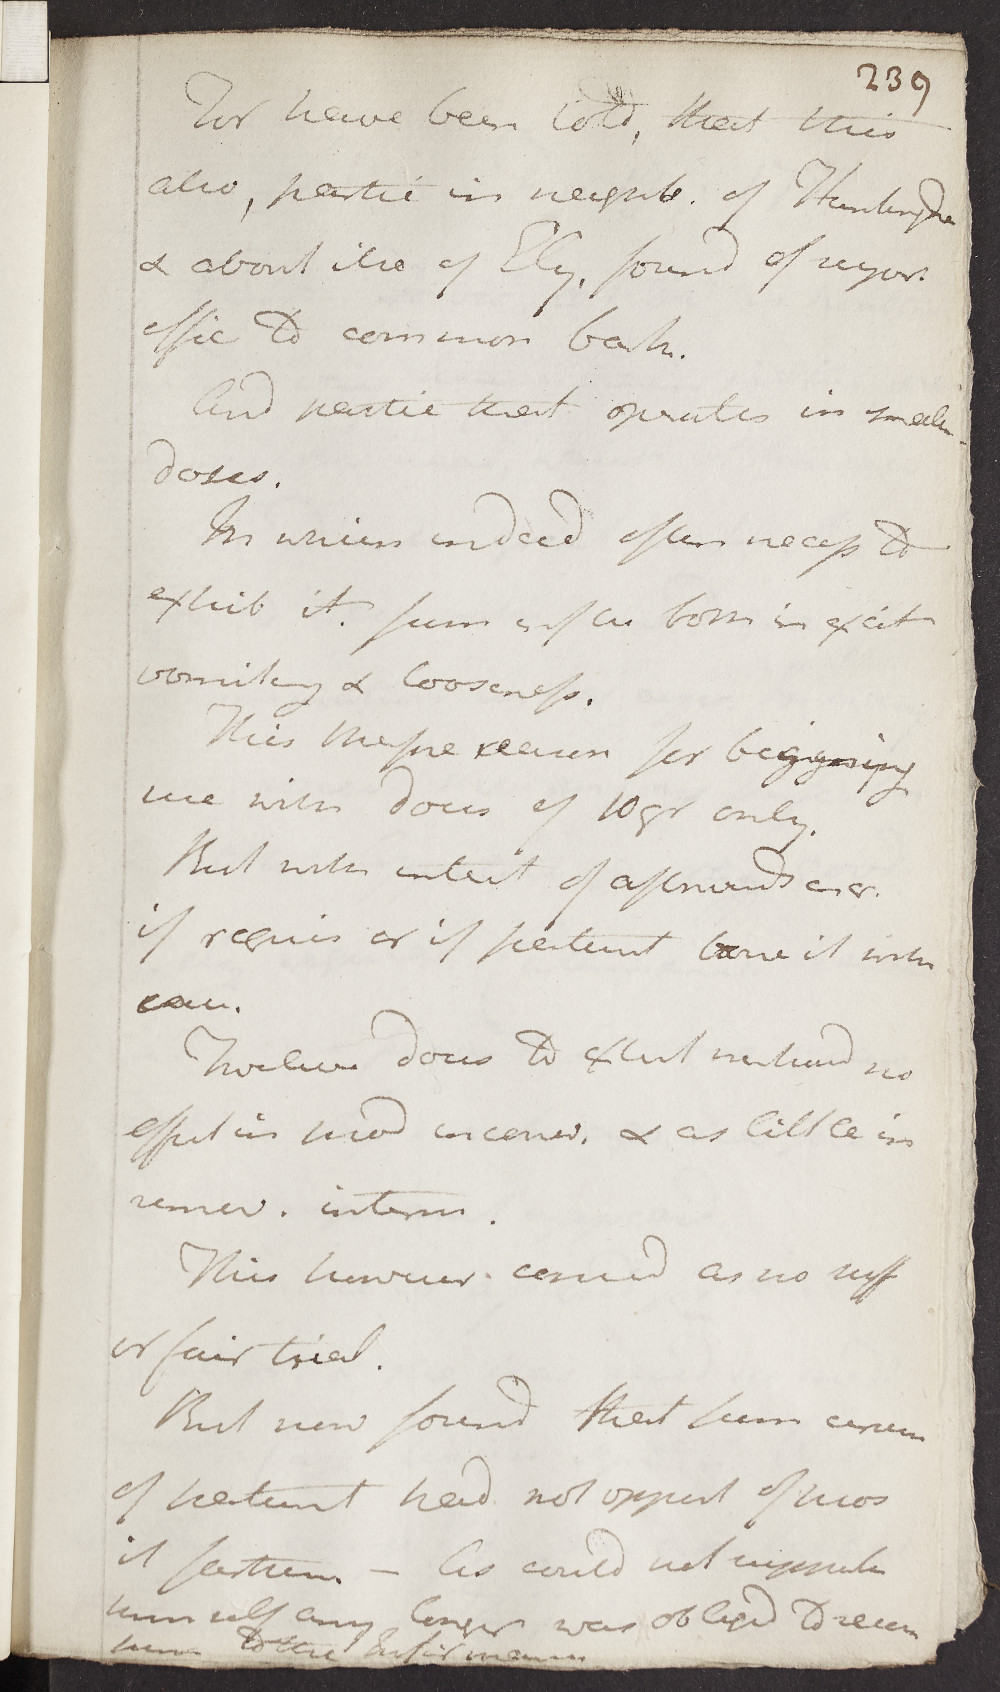 239
For have been told, that this
also, partic in neighb. of Huntingdre
& about isle of Ely, found of super.
effic to common bark.
And partic that operates in smaller
doses.
In which indeed often necess to
exhib it. from both in excit
vomiting & looseness.
This therefore reason for beginning
use with doses of 10gr only.
But with intent of afterwards incr.
if requis or if patient bore it with
ease.
Twelve doses to extent mentiond no
effect in mod & as little in
remov. interm.
This however consid as no suff
or fair trial.
But now found that from
of patient had not opport of
it farther — As could not support
himself any longer was obliged to
him to the Infirmary